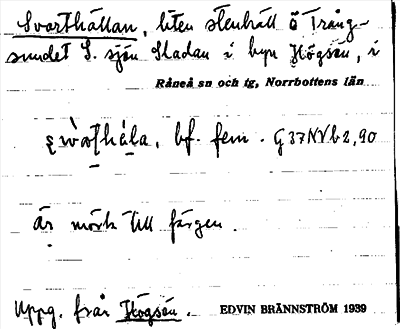 Svarthällan, liten stenhäll å Trång-
sundet S. sjön Sladan i byn Högsön, i
Råneå sn och tg, Norrbottens län
bf. fem. G37NVb2,90
är mörk till färgen.
Uppg. från Högsön. EDVIN BRÄNNSTRÖM 1939